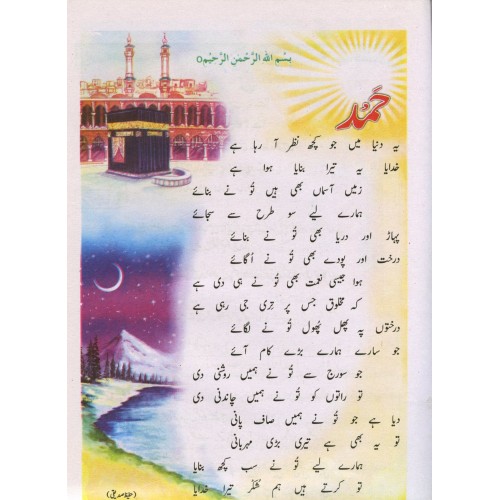 بِسْمِ اللہِ الرَّحْمٰنِ الرَّحِیْمِ
حَمد
یہ دنیا میں جو کچھ نظر آ رہا ہے
خدایا یہ تیرا بنایا ہوا ہے
زمیں آسماں بھی ہیں تُو نے بنائے
ہمارے لیے سو طرح سے سجائے
پہاڑ اور دریا بھی تُو نے بنائے
درخت اور پودے بھی تُو نے اُگائے
ہوا جیسی نعمت بھی تُو نے ہی دی ہے
کہ مخلوق جس پر تِری جی رہی ہے
درختوں پہ پھل پُھول تُو نے لگائے
جو سارے ہمارے بڑے کام آئے
جو سورج سے تُو نے ہمیں روشنی دی
تو راتوں کو تُو نے ہمیں چاندنی دی
دیا ہے جو تُو نے ہمیں صاف پانی
تو یہ بھی ہے تیری بڑی مہربانی
ہمارے لیے تُو نے سب کچھ بنایا
تو کرتے ہیں ہم شُکر تیرا خدایا